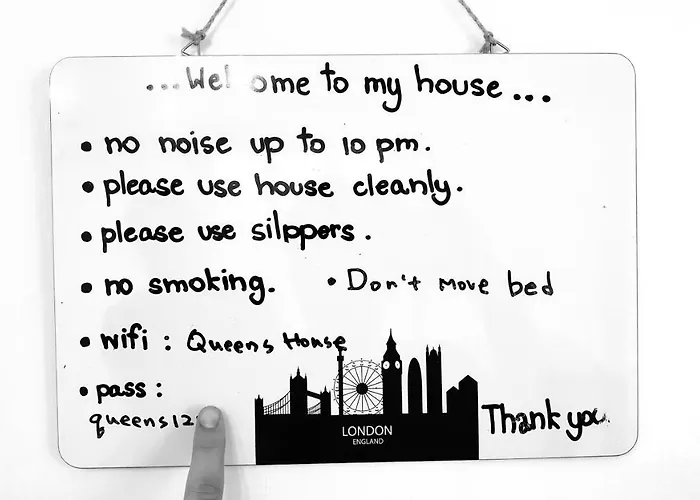 ...Wel ome to my house...
• no noise up to 10 pm.
• please use house cleanly.
• please use silppers.
• no smoking. • Don't move bed
• wifi : Queens House
• pass :
queens12
LONDON
ENGLAND
Thank you.